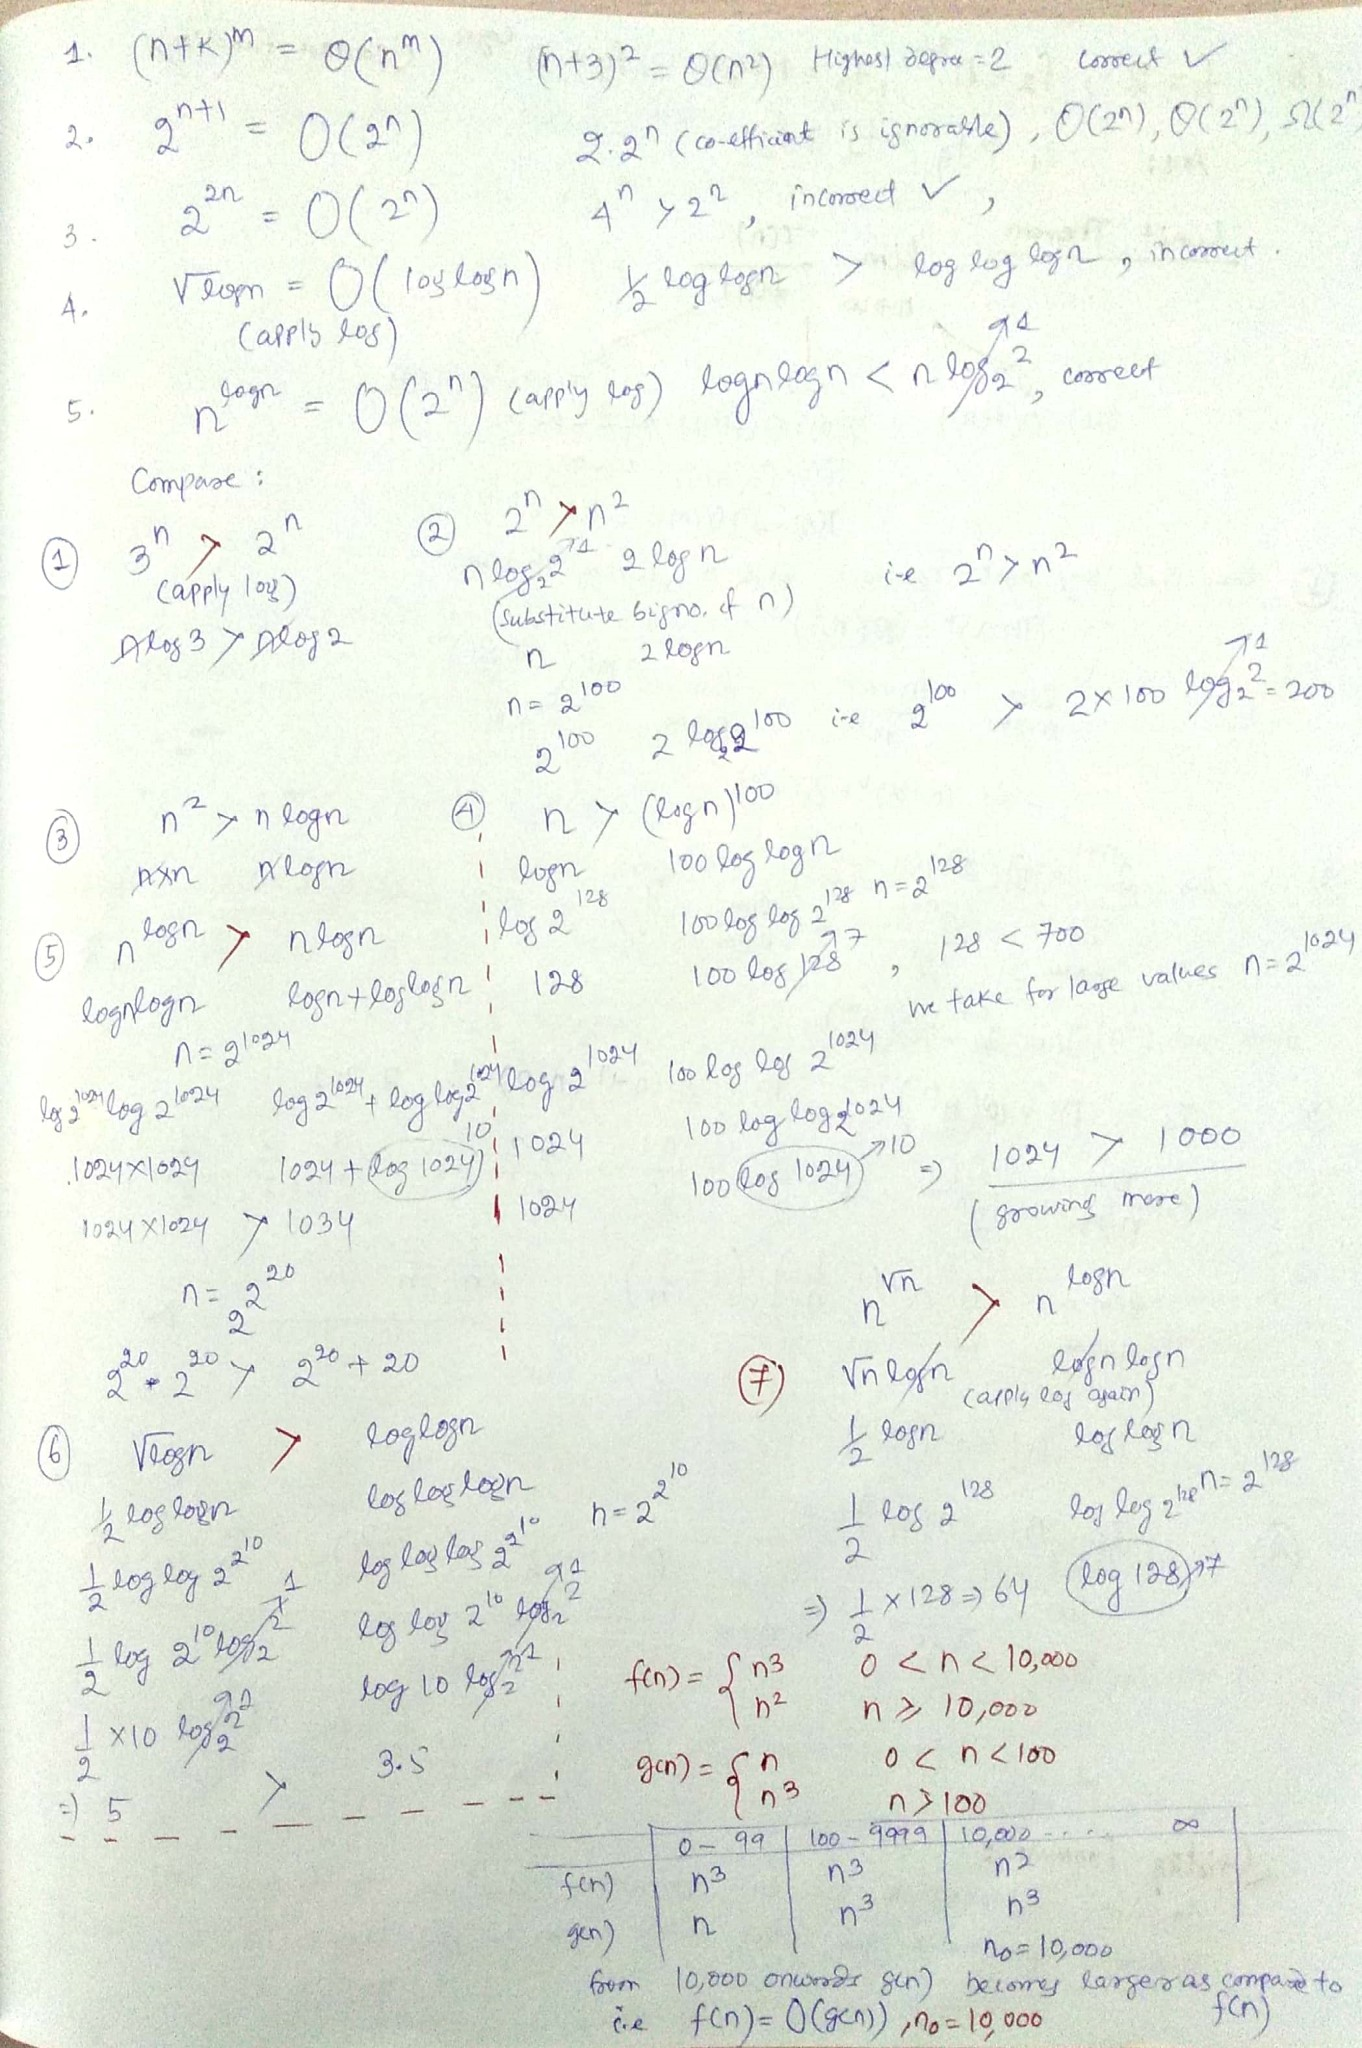 1. (n+k)^m = Θ(n^m) (n+3)² = Θ(n²) Highest degree = 2 correct ✓
2. 2^(n+1) = O(2^n) 2.2^n (co-efficient is ignorable), O(2^n), Θ(2^n), Ω(2^n)
3. 2^(2n) = O(2^n) 4^n > 2^n, incorrect ✓,
4. √logn = O(loglogn) 1/2 log logn > log log logn, incorrect.
(apply log)
5. n^logn = O(2^n) (apply log) lognlogn < n log₂2 ↗1, correct
Compare :
① 3^n > 2^n
(apply log)
nlog3 > nlog2
② 2^n > n²
n log₂2 ↗1 2 log n
(substitute big no. of n) i.e 2^n > n²
n 2 logn
n = 2^100
2^100 2 log₂2^100 i-e 2^100 > 2×100 log₂2 ↗1 = 200
③ n² > n logn
n×n nlogn
④ n > (logn)^100
logn 100 log logn
log 2^128 100 log log 2^128 n = 2^128
128 100 log 128 ↗7, 128 < 700
we take for large values n = 2^1024
log 2^1024 100 log log 2^1024
1024 100 log log 2^1024
1024 100 log 1024 ↗10 ⇒ 1024 > 1000
(growing more)
⑤ n^logn > nlogn
lognlogn logn+loglogn
n = 2^1024
log 2^1024 log 2^1024 log 2^1024 + log log 2^1024
1024×1024 1024 + log 1024 10
1024×1024 > 1034
n = 2^2^20
2^20 * 2^20 > 2^20 + 20
⑥ √logn > loglogn
1/2 log logn log log logn n = 2^2^10
1/2 log log 2^2^10 log log log 2^2^10
1/2 log 2^10 log₂2 ↗1 log log 2^10 log₂2 ↗1
1/2 ×10 log₂2 ↗1 log 10 log₂2 ↗1
⇒ 5 > 3.5
⑦ n^√n > n^logn
√n logn logn logn
(apply log again)
1/2 logn log logn
1/2 log 2^128 log log 2^128 n = 2^128
⇒ 1/2 ×128 ⇒ 64 log 128 ↗7
f(n) = { n3 0 < n < 10,000
n2 n ≥ 10,000
g(n) = { n 0 < n < 100
n3 n ≥ 100
0 – 99 100 – 9999 10,000 .... ∞
f(n) n3 n3 n2
g(n) n n3 n3
n₀ = 10,000
from 10,000 onwards g(n) becomes larger as compare to f(n)
i.e f(n) = O(g(n)), n₀ = 10,000